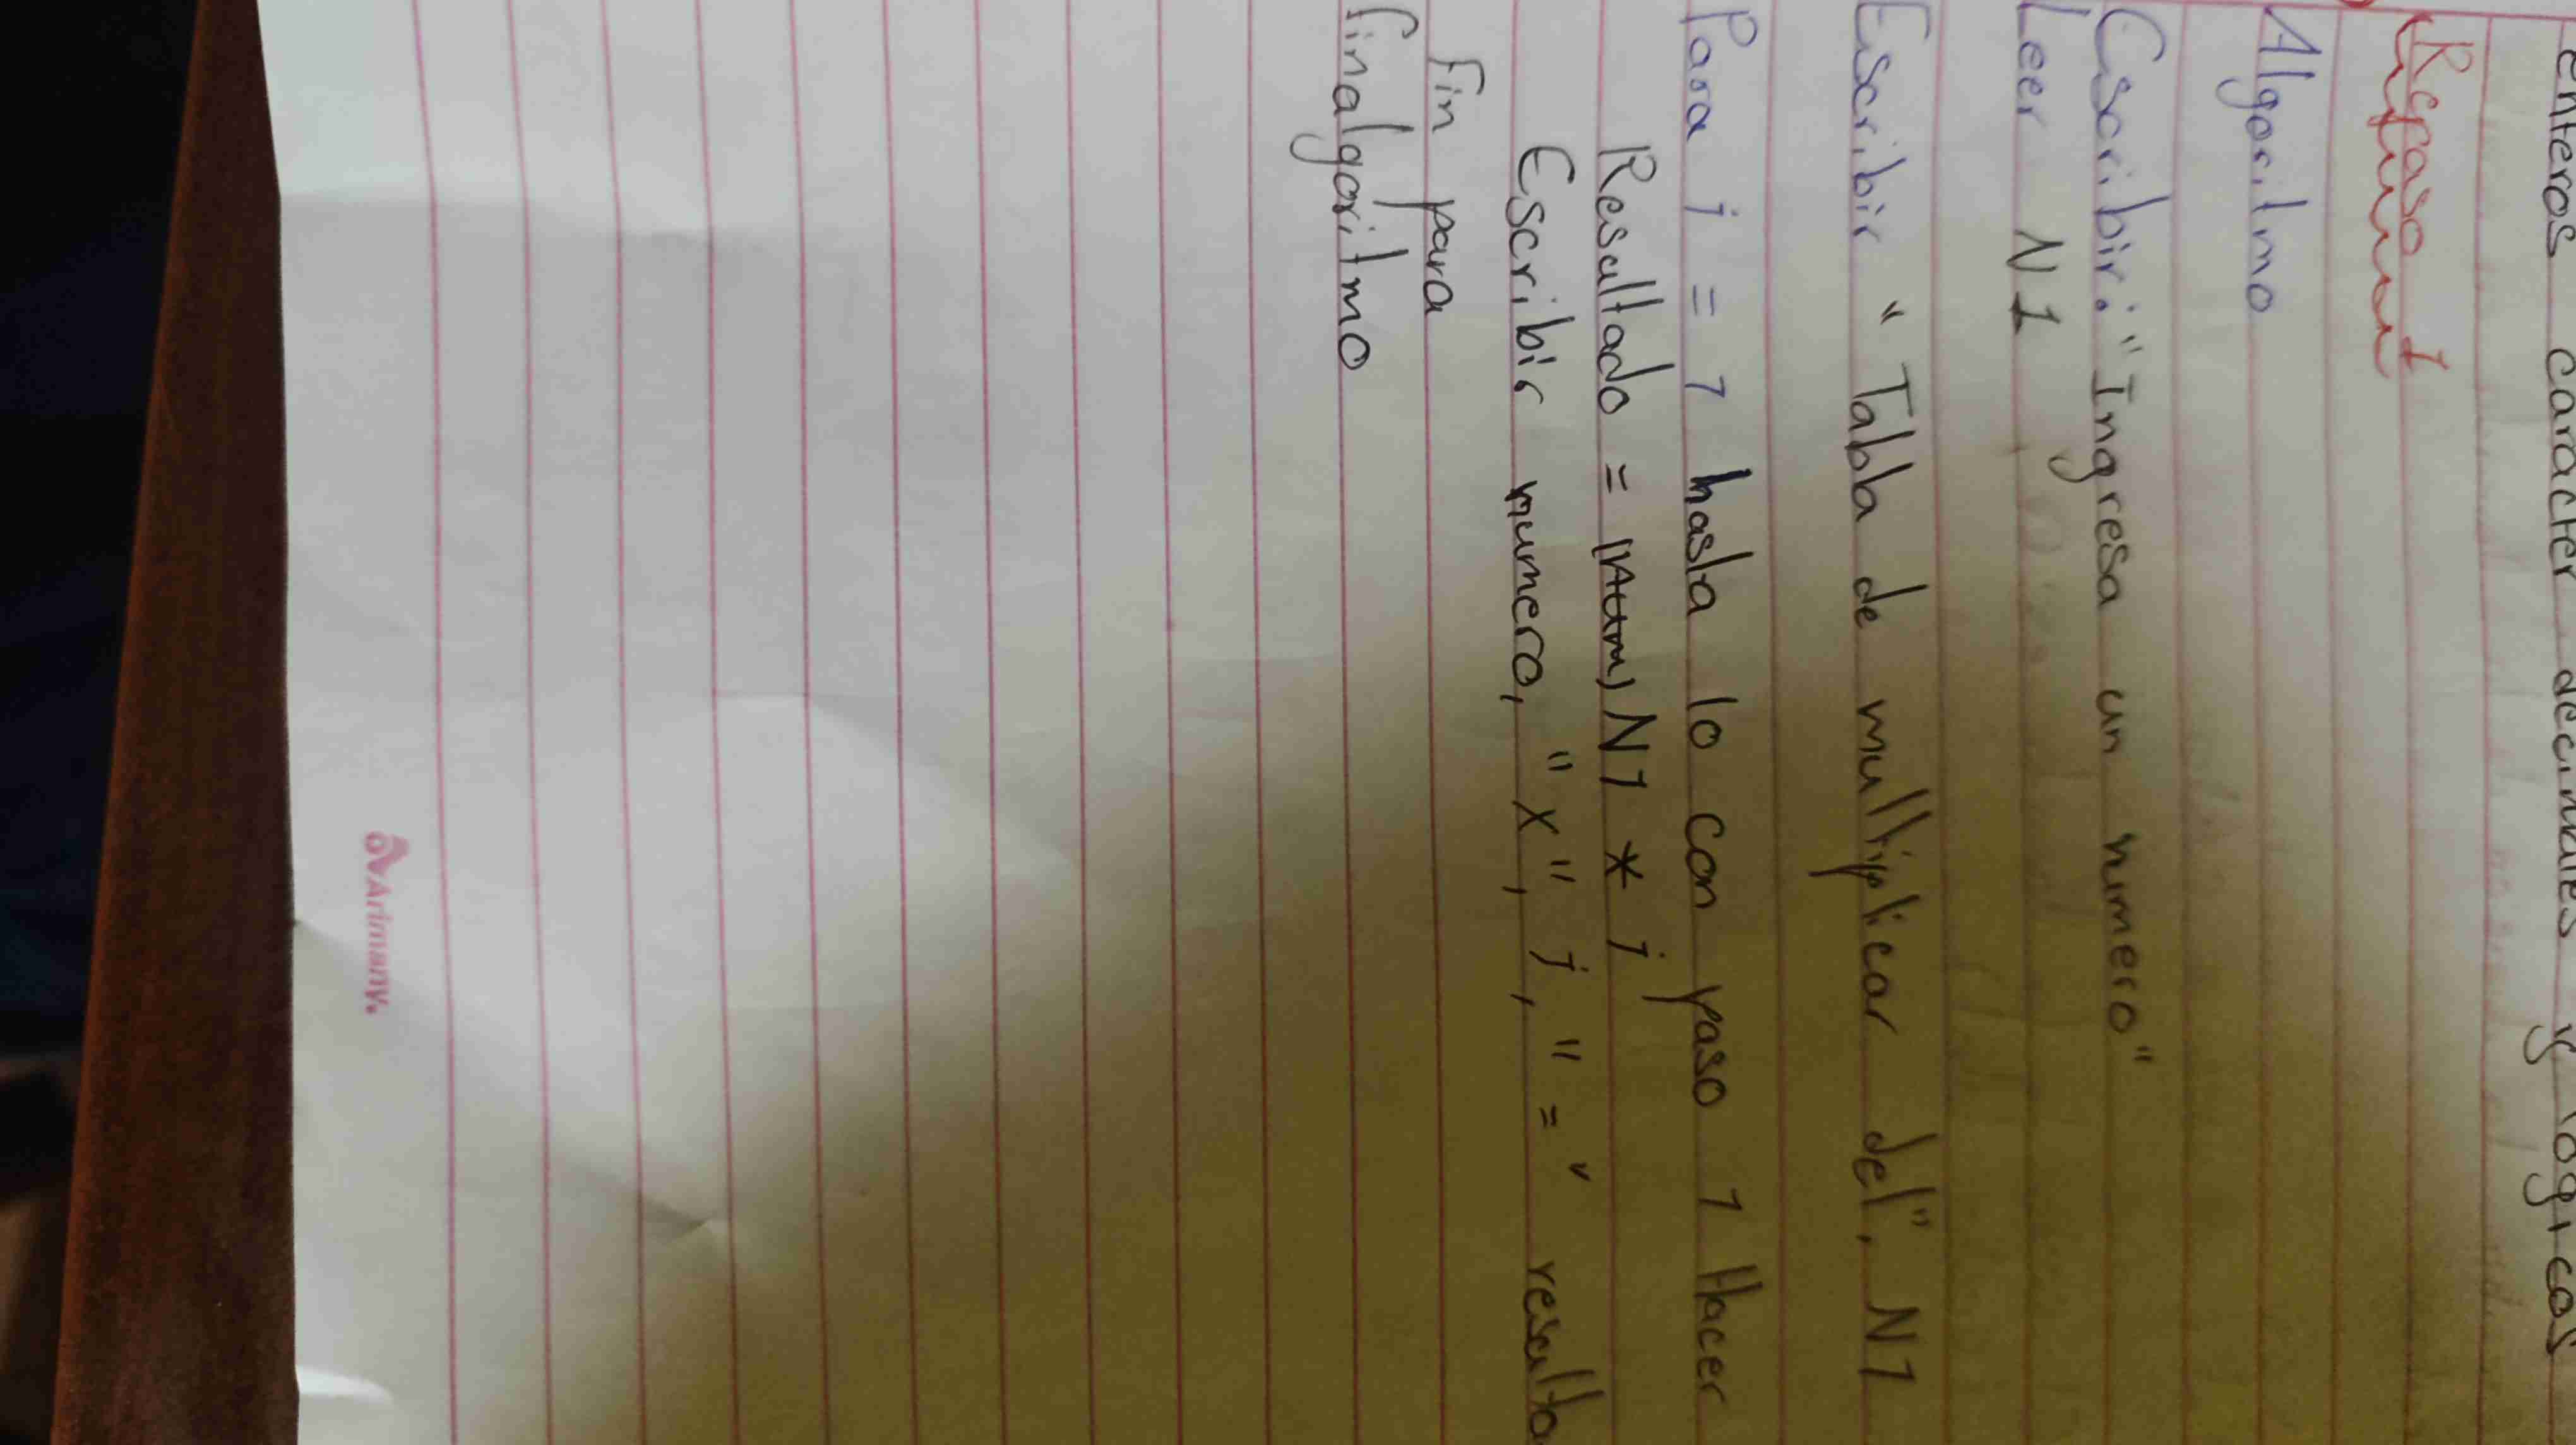 enteros caracter decimales y logicos
Repaso 1
Algoritmo
Escribir: "Ingresa un numero"
Leer N1
Escribir "Tabla de multiplicar del", N1
Para i = 1 hasta 10 con paso 1 Hacer
Resultado = N1 * i
Escribir numero, "x", i, "=" resulta
Fin para
Finalgoritmo
Arimany.